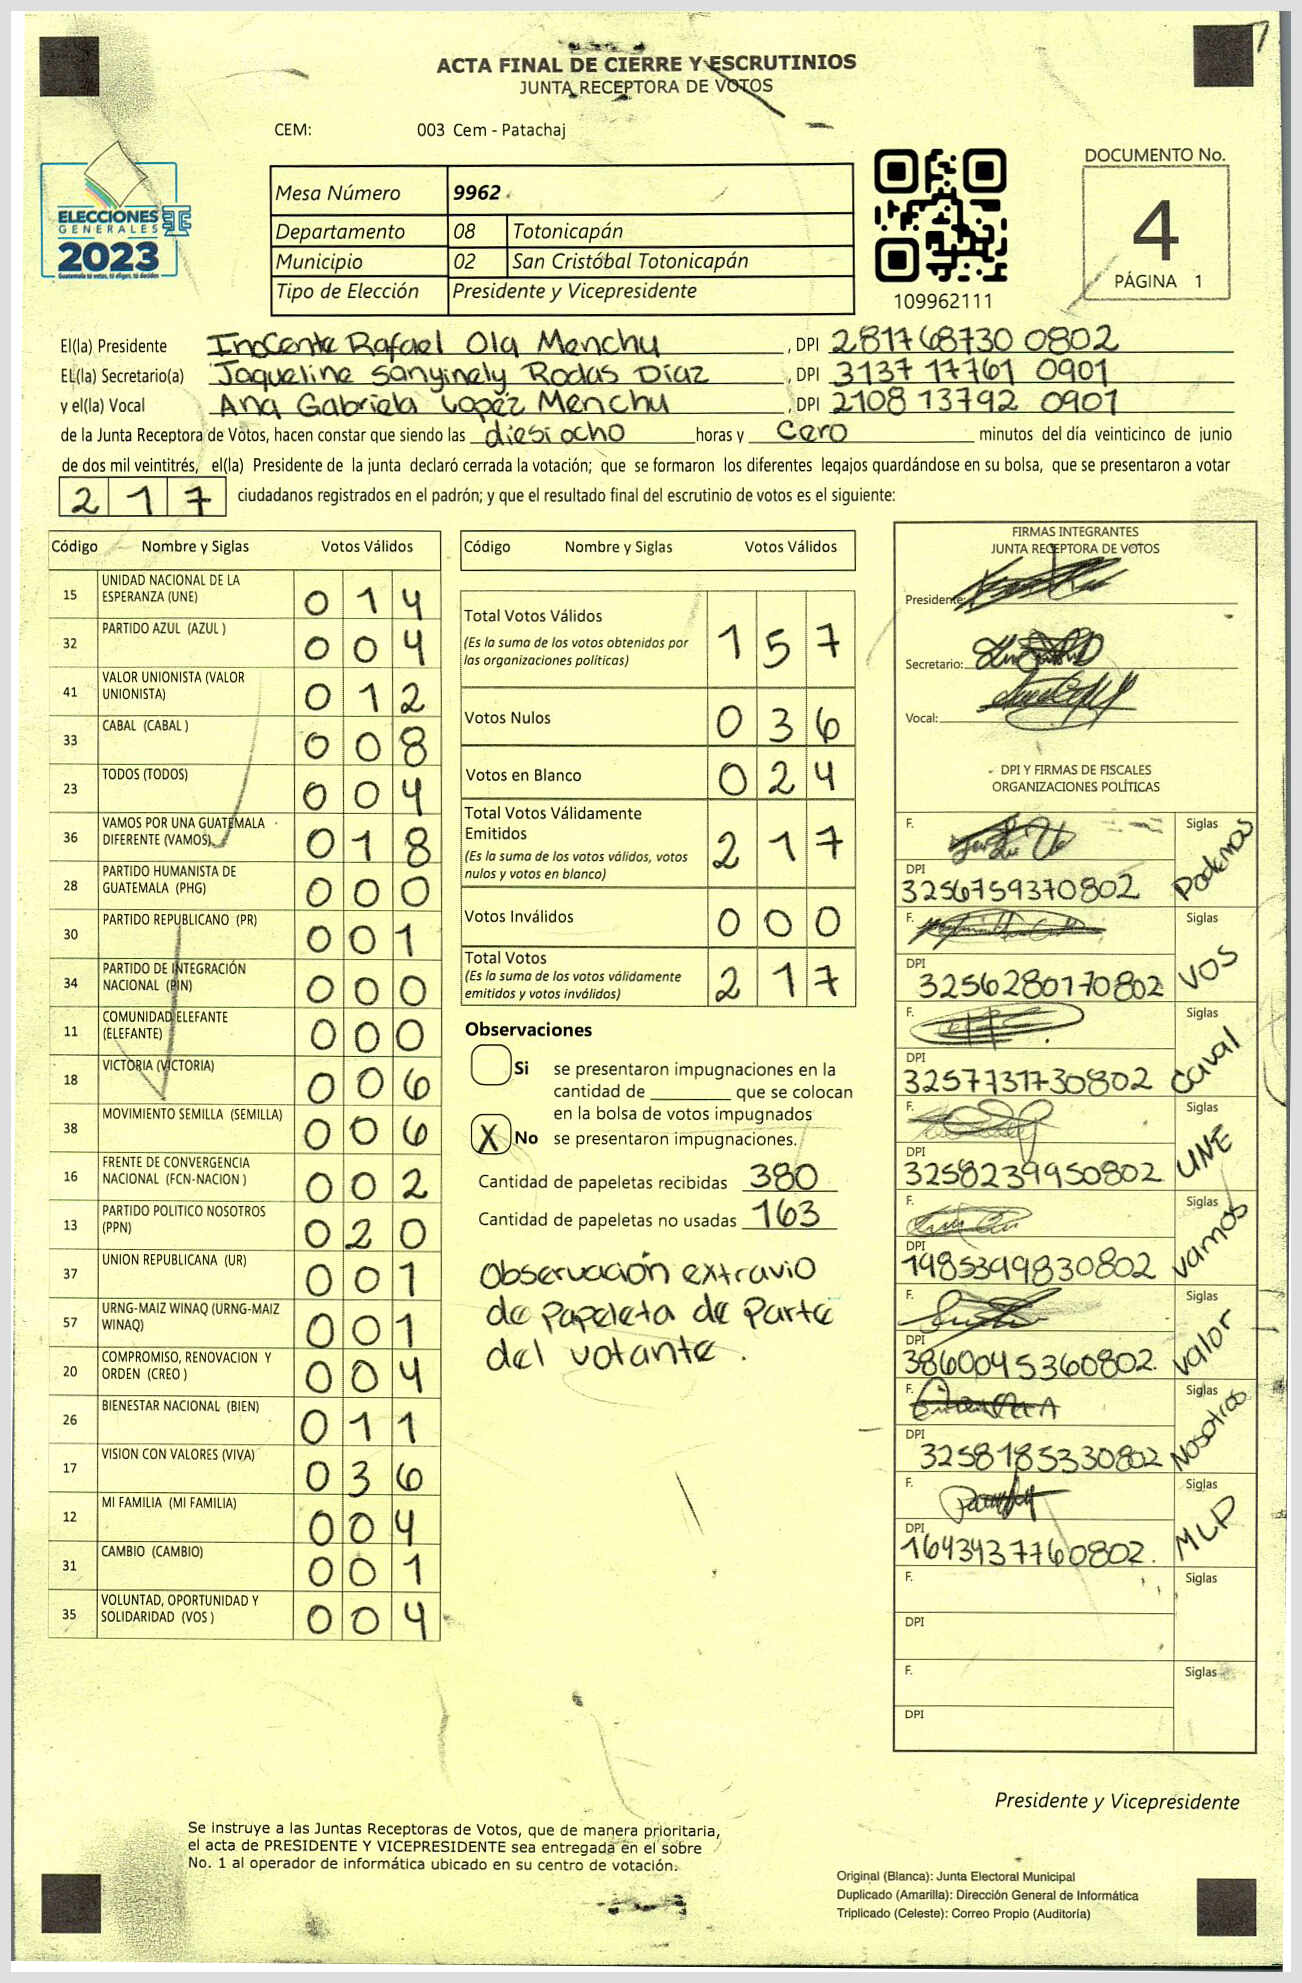 ACTA FINAL DE CIERRE Y ESCRUTINIOS
JUNTA RECEPTORA DE VOTOS
CEM: 003 Cem - Patachaj
ELECCIONES
GENERALES
2023
Guatemala te votas, tú eliges, tú decides
Mesa Número 9962
Departamento 08 Totonicapán
Municipio 02 San Cristóbal Totonicapán
Tipo de Elección Presidente y Vicepresidente
109962111
DOCUMENTO No.
4
PÁGINA 1
El(la) Presidente Inocente Rafael Ola Menchu, DPI 281768730 0802
EL(la) Secretario(a) Jaqueline Sanyinely Rodas Díaz, DPI 3137 17761 0901
y el(la) Vocal Ana Gabriela Lopéz Menchu, DPI 2108 13792 0901
de la Junta Receptora de Votos, hacen constar que siendo las diesiocho horas y cero minutos del día veinticinco de junio
de dos mil veintitrés, el(la) Presidente de la junta declaró cerrada la votación; que se formaron los diferentes legajos guardándose en su bolsa, que se presentaron a votar
217 ciudadanos registrados en el padrón; y que el resultado final del escrutinio de votos es el siguiente:
Código Nombre y Siglas Votos Válidos
15 UNIDAD NACIONAL DE LA ESPERANZA (UNE) 014
32 PARTIDO AZUL (AZUL ) 004
41 VALOR UNIONISTA (VALOR UNIONISTA) 012
33 CABAL (CABAL ) 008
23 TODOS (TODOS) 004
36 VAMOS POR UNA GUATEMALA DIFERENTE (VAMOS) 018
28 PARTIDO HUMANISTA DE GUATEMALA (PHG) 000
30 PARTIDO REPUBLICANO (PR) 001
34 PARTIDO DE INTEGRACIÓN NACIONAL (PIN) 000
11 COMUNIDAD ELEFANTE (ELEFANTE) 000
18 VICTORIA (VICTORIA) 006
38 MOVIMIENTO SEMILLA (SEMILLA) 006
16 FRENTE DE CONVERGENCIA NACIONAL (FCN-NACION ) 002
13 PARTIDO POLITICO NOSOTROS (PPN) 020
37 UNION REPUBLICANA (UR) 001
57 URNG-MAIZ WINAQ (URNG-MAIZ WINAQ) 001
20 COMPROMISO, RENOVACION Y ORDEN (CREO ) 004
26 BIENESTAR NACIONAL (BIEN) 011
17 VISION CON VALORES (VIVA) 036
12 MI FAMILIA (MI FAMILIA) 004
31 CAMBIO (CAMBIO) 001
35 VOLUNTAD, OPORTUNIDAD Y SOLIDARIDAD (VOS ) 004
Código Nombre y Siglas Votos Válidos
Total Votos Válidos 157
(Es la suma de los votos obtenidos por
las organizaciones políticas)
Votos Nulos 036
Votos en Blanco 024
Total Votos Válidamente
Emitidos 217
(Es la suma de los votos válidos, votos
nulos y votos en blanco)
Votos Inválidos 000
Total Votos 217
(Es la suma de los votos válidamente
emitidos y votos inválidos)
Observaciones
Si se presentaron impugnaciones en la
cantidad de ________ que se colocan
en la bolsa de votos impugnados
X No se presentaron impugnaciones.
Cantidad de papeletas recibidas 380
Cantidad de papeletas no usadas 163
Observación extravio
de papeleta de parte
del votante.
FIRMAS INTEGRANTES
JUNTA RECEPTORA DE VOTOS
Presidente:
Secretario:
Vocal:
DPI Y FIRMAS DE FISCALES
ORGANIZACIONES POLÍTICAS
F. Siglas Podemos
DPI 3256759370802
F. Siglas VOS
DPI 3256280170802
F. Siglas Caval
DPI 3257731730802
F. Siglas UNE
DPI 3258239950802
F. Siglas vamos
DPI 1985399830802
F. Siglas Valor
DPI 3860045360802.
F. Siglas Nosotros
DPI 3258185330802
F. Siglas MLP
DPI 1643437760802.
F. Siglas
DPI
F. Siglas
DPI
Presidente y Vicepresidente
Se instruye a las Juntas Receptoras de Votos, que de manera prioritaria,
el acta de PRESIDENTE Y VICEPRESIDENTE sea entregada en el sobre
No. 1 al operador de informática ubicado en su centro de votación.
Original (Blanca): Junta Electoral Municipal
Duplicado (Amarilla): Dirección General de Informática
Triplicado (Celeste): Correo Propio (Auditoría)